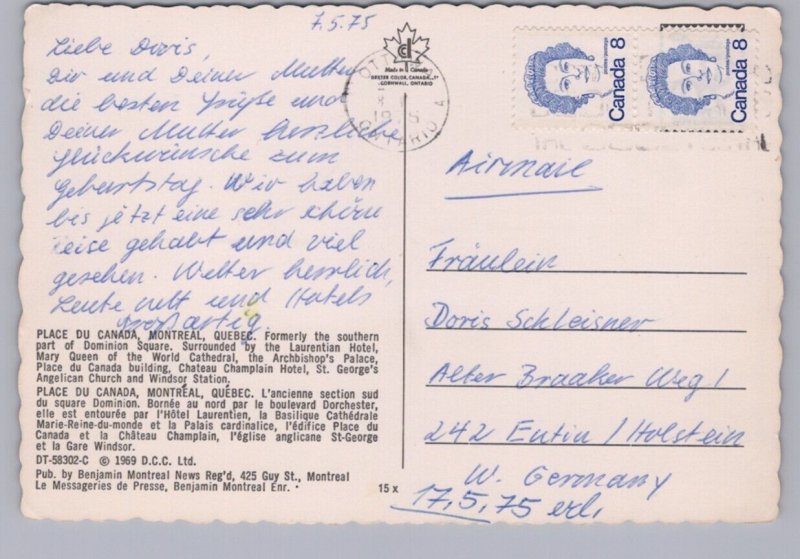 7.5.75
Liebe Doris,
Dir und Deiner Mutter
die besten Grüße und
Deiner Mutter herzliche
Glückwünsche zum
Geburtstag. Wir haben
bis jetzt eine sehr schöne
Reise gehabt und viel
gesehen. Wetter herrlich,
Leute nett und Hotels
großartig.
PLACE DU CANADA, MONTREAL, QUEBEC. Formerly the southern
part of Dominion Square. Surrounded by the Laurentian Hotel,
Mary Queen of the World Cathedral, the Archbishop's Palace,
Place du Canada building, Chateau Champlain Hotel, St. George's
Angelican Church and Windsor Station.
PLACE DU CANADA, MONTRÉAL, QUÉBEC. L'ancienne section sud
du square Dominion. Bornée au nord par le boulevard Dorchester,
elle est entourée par l'Hôtel Laurentien, la Basilique Cathédrale
Marie-Reine-du-monde et la Palais cardinalice, l'édifice Place du
Canada et la Château Champlain, l'église anglicane St-George
et la Gare Windsor.
DT-58302-C © 1969 D.C.C. Ltd.
Pub. by Benjamin Montreal News Reg'd, 425 Guy St., Montreal
Le Messageries de Presse, Benjamin Montreal Enr. •
15 x
Made in Canada
DEXTER COLOR, CANADA
CORNWALL, ONTARIO
ONTARIO
Canada 8
Canada 8
Airmail
Fräulein
Doris Schleisner
Alter Braaker Weg 1
242 Eutin / Holstein
W. Germany
17.5.75 erl.